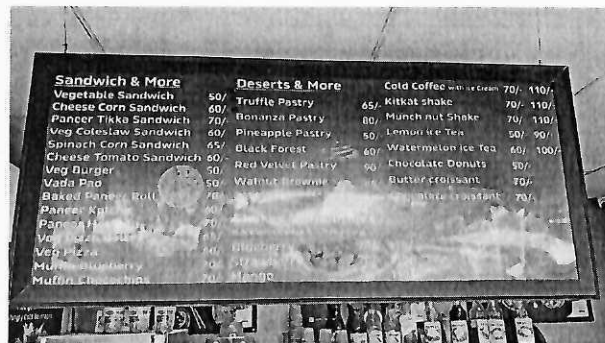 Sandwich & More
Vegetable Sandwich 50/-
Cheese Corn Sandwich 60/-
Paneer Tikka Sandwich 70/-
Veg Coleslaw Sandwich 60/-
Spinach Corn Sandwich 65/-
Cheese Tomato Sandwich 60/-
Veg Burger 50/-
Vada Pao 50/-
Baked Paneer Roll
Paneer
Paneer
Veg Pizza
Muffin Blueberry
Muffin Chocochips
Deserts & More
Truffle Pastry 65/-
Bonanza Pastry 80/-
Pineapple Pastry 50/-
Black Forest 60/-
Red Velvet Pastry 90/-
Walnut Brownie
Blueberry
Mango
Cold Coffee with Ice Cream 70/- 110/-
Kitkat shake 70/- 110/-
Munch nut Shake 70/- 110/-
Lemon Ice Tea 50/- 90/-
Watermelon Ice Tea 60/- 100/-
Chocolate Donuts 50/-
Butter croissant 70/-
croissant 70/-